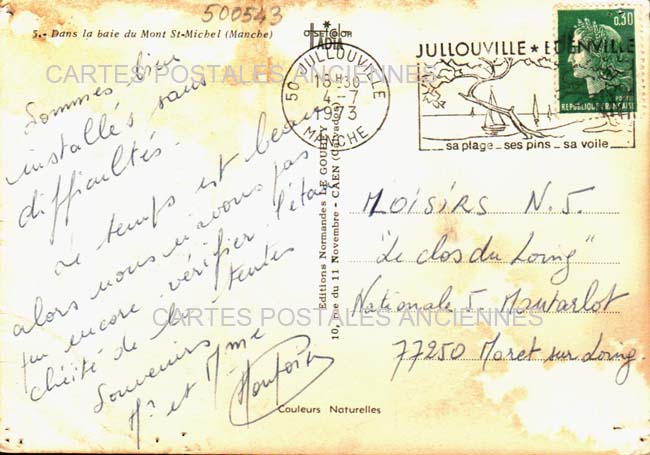 500543
5.- Dans la baie du Mont St-Michel (Manche)
CARTES POSTALES ANCIENNES
Sommes bien
installés sans
difficultés.
Le temps est beau
alors nous n'avons pas
pu encore vérifier l'étan
chéité de la tentes
Souvenirs
Mr et Mme
LADIA
50 JULLOUVILLE
18H30
4-7
1973
MANCHE
JULLOUVILLE ★ EDENVILLE
sa plage _ ses pins _ sa voile
0,30
POSTES
REPUBLIQUE FRANÇAISE
Editions Normandes LE GOUBEY
10, rue du 11 Novembre - CAEN (Calvados)
LOISIRS N.J.
"Le clos du Loing"
Nationale 5 Montarlot
77250 Moret sur Loing.
CARTES POSTALES ANCIENNES
Couleurs Naturelles